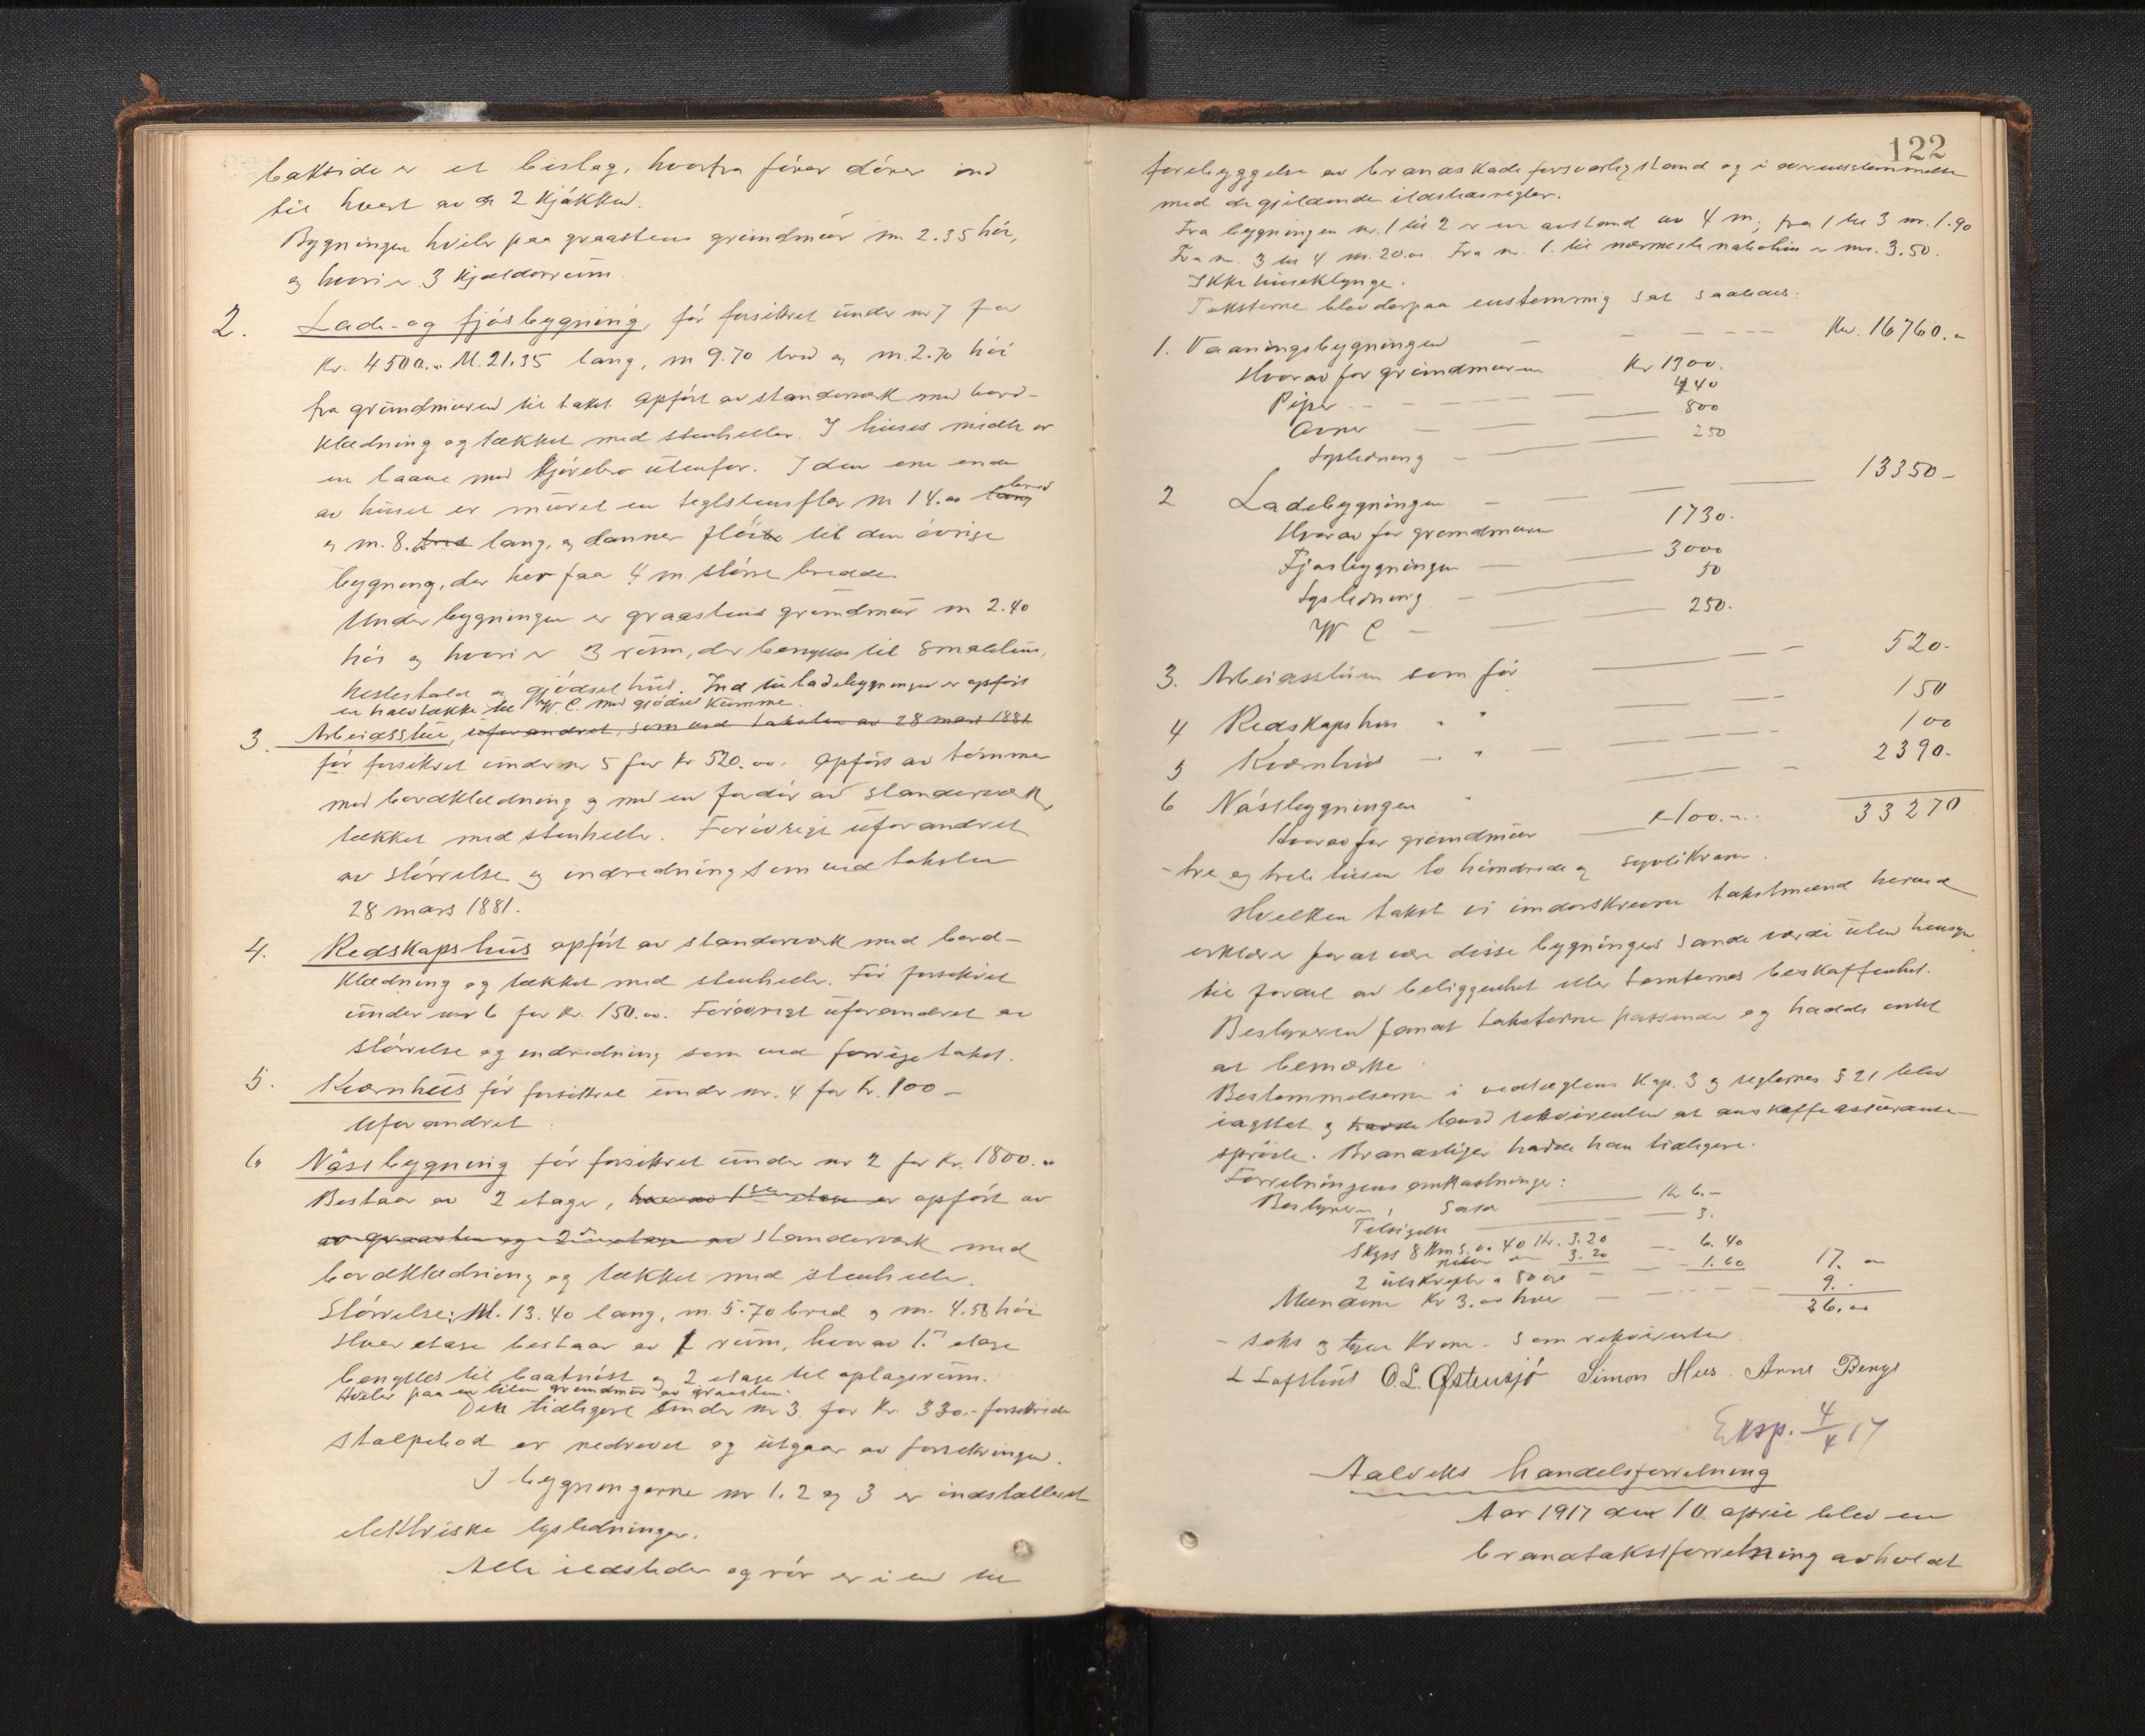 bakside er et bislag, hvorfra fører dører ind
til hvert av de 2 kjøkken.
Bygningen hviler paa graastens grundmur m. 2.35 høi,
og hvori er 3 kjælderrum.
2. Lade- og fjøsbygning, før forsikret under nr 7 for
Kr. 4500.00 M. 21.35 lang, m 9.70 bred og m. 2.70 høi
fra grundmuren til taket. Opført av standerverk med bord-
klædning og tækket med stenheller. I husets midte er
en laave med kjørebro utenfor. I den ene ende
av huset er muret en teglstensfløi m 14.00 lang bred
og m. 8.00 bred lang, og danner fløi til den øvrige
bygning, der her faar 4 m større bredde.
Under bygningen er graastens grundmur m 2.40
høi og hvori er 3 rum, der benyttes til smalehus,
hestestald og gjødselhus. Ind til ladebygningen er opført
en halvtække til W.C. med gjødselkumme.
3. Arbeidsstue, uforandret, som ved taksten av 28 mars 1881
før forsikret under nr 5 for kr 520.00. Opført av tømmer
med bordklædning og med en fordør av standerverk,
tækket med stenheller. Forøvrigt uforandret
av størrelse og indredning som ved taksten
28 mars 1881.
4. Redskapshus opført av standerverk med bord-
klædning og tækket med stenheller. Før forsikret
under nr 6 for kr. 150.00. Forøvrigt uforandret av
størrelse og indredning som ved forrige takst.
5. Kvernhus før forsikret under nr. 4 for kr. 100 -
Uforandret.
6. Nøstbygning før forsikret under nr 2 for kr. 1800.00
Bestaar av 2 etager, hvorav 1ste etage er opført av
av graasten og 2den etage av standerverk med
bordklædning og tækket med stenheller.
Størrelse: M. 13.40 lang, m. 5.70 bred og m. 4.58 høi
Hver etage bestaar av 1 rum, hvorav 1ste etage
benyttes til baatnøst og 2 etage til oplagsrum.
Hviler paa en liten grundmur av graasten.
Den tidligere under nr 3 for kr. 330.- forsikrede
stalpebod er nedrevet og utgaar av forsikringen.
I bygningerne nr 1. 2 og 3 er indstalleret
elektriske lysledninger.
Alle ildsteder og rør er i en til
122
forebyggelse av brandskade forsvarlig stand og i overensstemmelse
med de gjældende ildstedsregler.
Fra bygningen nr. 1 til 2 er en avstand av 4 m; fra 1 til 3 m. 1.90
Fra nr. 3 til 4 m. 20.00. Fra nr. 1. til nærmeste nabohus er m. 3.50.
Ikke huseklynge.
Taksterne blev derpaa enstemmig sat saaledes:
1. Vaaningsbygningen — Kr. 16760.00
Hvorav for grundmuren Kr 1300.
Piper — 440
Ovner — 800
Lysledning — 250
2 Ladebygningen — 13350 -
Hvorav for grundmuren 1730.
Fjøsbygningen — 3000
Lysledning — 50
W C — 250.
3. Arbeidsstuen som før — 520.
4 Redskapshus " " — 150
5 Kvernhus — " — 100
6 Nøstbygningen " — 2390.
Hvorav for grundmur — kr 100.00. 33270
- tre og treti tusen to hundrede og sytti kroner.
Hvilken takst vi underskrevne takstmænd herved
erklærer for at være disse bygningers sande værdi uten hensyn
til fordel av beliggenhet eller tomternes beskaffenhet.
Bestyreren fandt taksterne passende og hadde intet
at bemerke.
Bestemmelserne i vedtægtens Kap. 3 og reglernes § 21 blev
iagttat og hadde lovd rekvirenten at anskaffe assurance-
sprøite. Brandstiger hadde han tidligere.
Forretningens omkostninger:
Bestyreren, Sats — Kr 6.-
Tilsigelse — 3.
Skyss 8 km s. a 40 Kr. 3.20
retur — 3.20 — 6.40
2 utskrifter a 80 øre — 1.60 17. 00
Mændene Kr 3.00 hver — 9.-
26.00
- seks og tyve kroner - som rekvirenten.
L Lofthus O. L. Østensjø Simon Hus. Arne Berge
Eksp. 4/4 17
Aalviks handelsforretning
Aar 1917 den 10. april blev en
brandtakstforretning avholdt